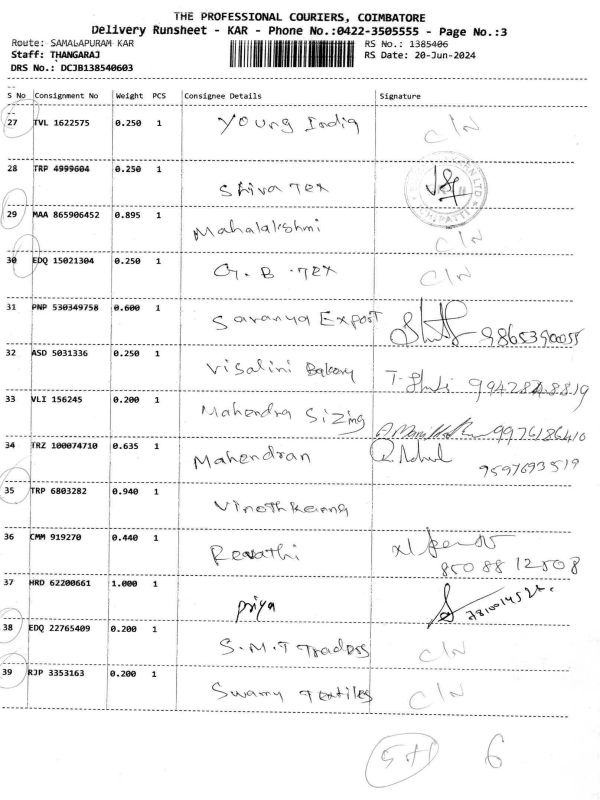 THE PROFESSIONAL COURIERS, COIMBATORE
Delivery Runsheet - KAR - Phone No.:0422-3505555 - Page No.:3
Route: SAMALAPURAM KAR RS No.: 1385406
Staff: THANGARAJ RS Date: 20-Jun-2024
DRS No.: DCJB138540603
S No Consignment No Weight PCS Consignee Details Signature
27 TVL 1622575 0.250 1 Young India C/N
28 TRP 4999604 0.250 1 Shiva Tex
29 MAA 865906452 0.895 1 Mahalakshmi C/N
30 EDQ 15021304 0.250 1 G.B.Tex C/N
31 PNP 530349758 0.600 1 Saranya Export 9865390055
32 ASD 5031336 0.250 1 Visalini Bakery
33 VLI 156245 0.200 1 Mahendra Sizing 9976186410
34 TRZ 100074710 0.635 1 Mahendran
9597693519
35 TRP 6803282 0.940 1 Vinothkanna
36 CMM 919270 0.440 1 Revathi
8508812508
37 HRD 62200661 1.000 1 Priya
38 EDQ 22765409 0.200 1 S.M.T Traders C/N
39 RJP 3353163 0.200 1 Swamy Textiles C/N
6